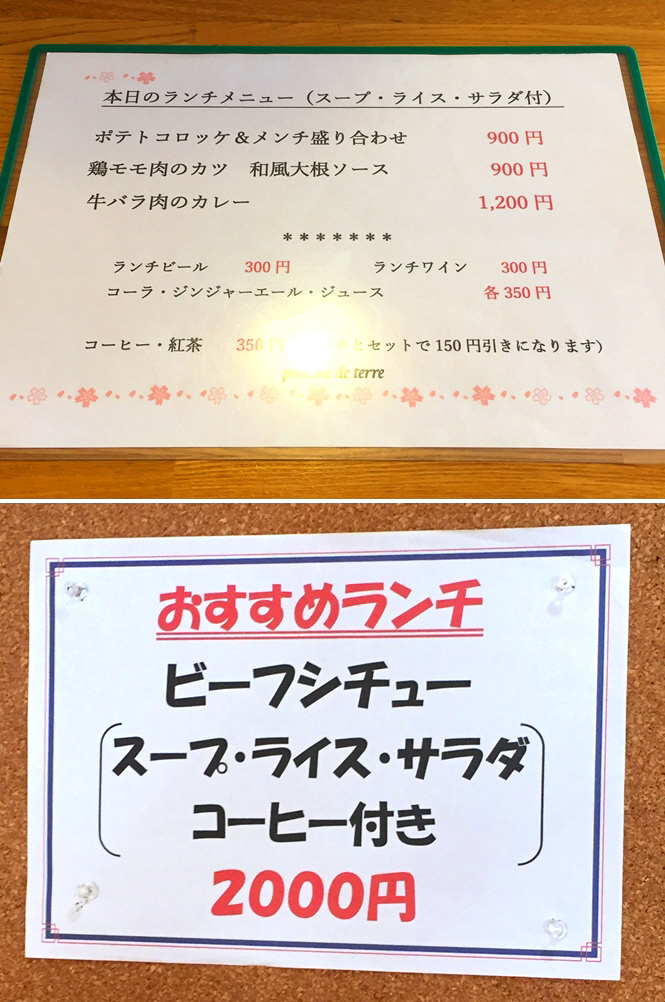 本日のランチメニュー（スープ・ライス・サラダ付）
ポテトコロッケ＆メンチ盛り合わせ 900円
鶏モモ肉のカツ 和風大根ソース 900円
牛バラ肉のカレー 1,200円
*******
ランチビール 300円 ランチワイン 300円
コーラ・ジンジャーエール・ジュース 各350円
コーヒー・紅茶 350円 とセットで150円引きになります)
de terre
おすすめランチ
ビーフシチュー
スープ・ライス・サラダ
コーヒー付き
2000円